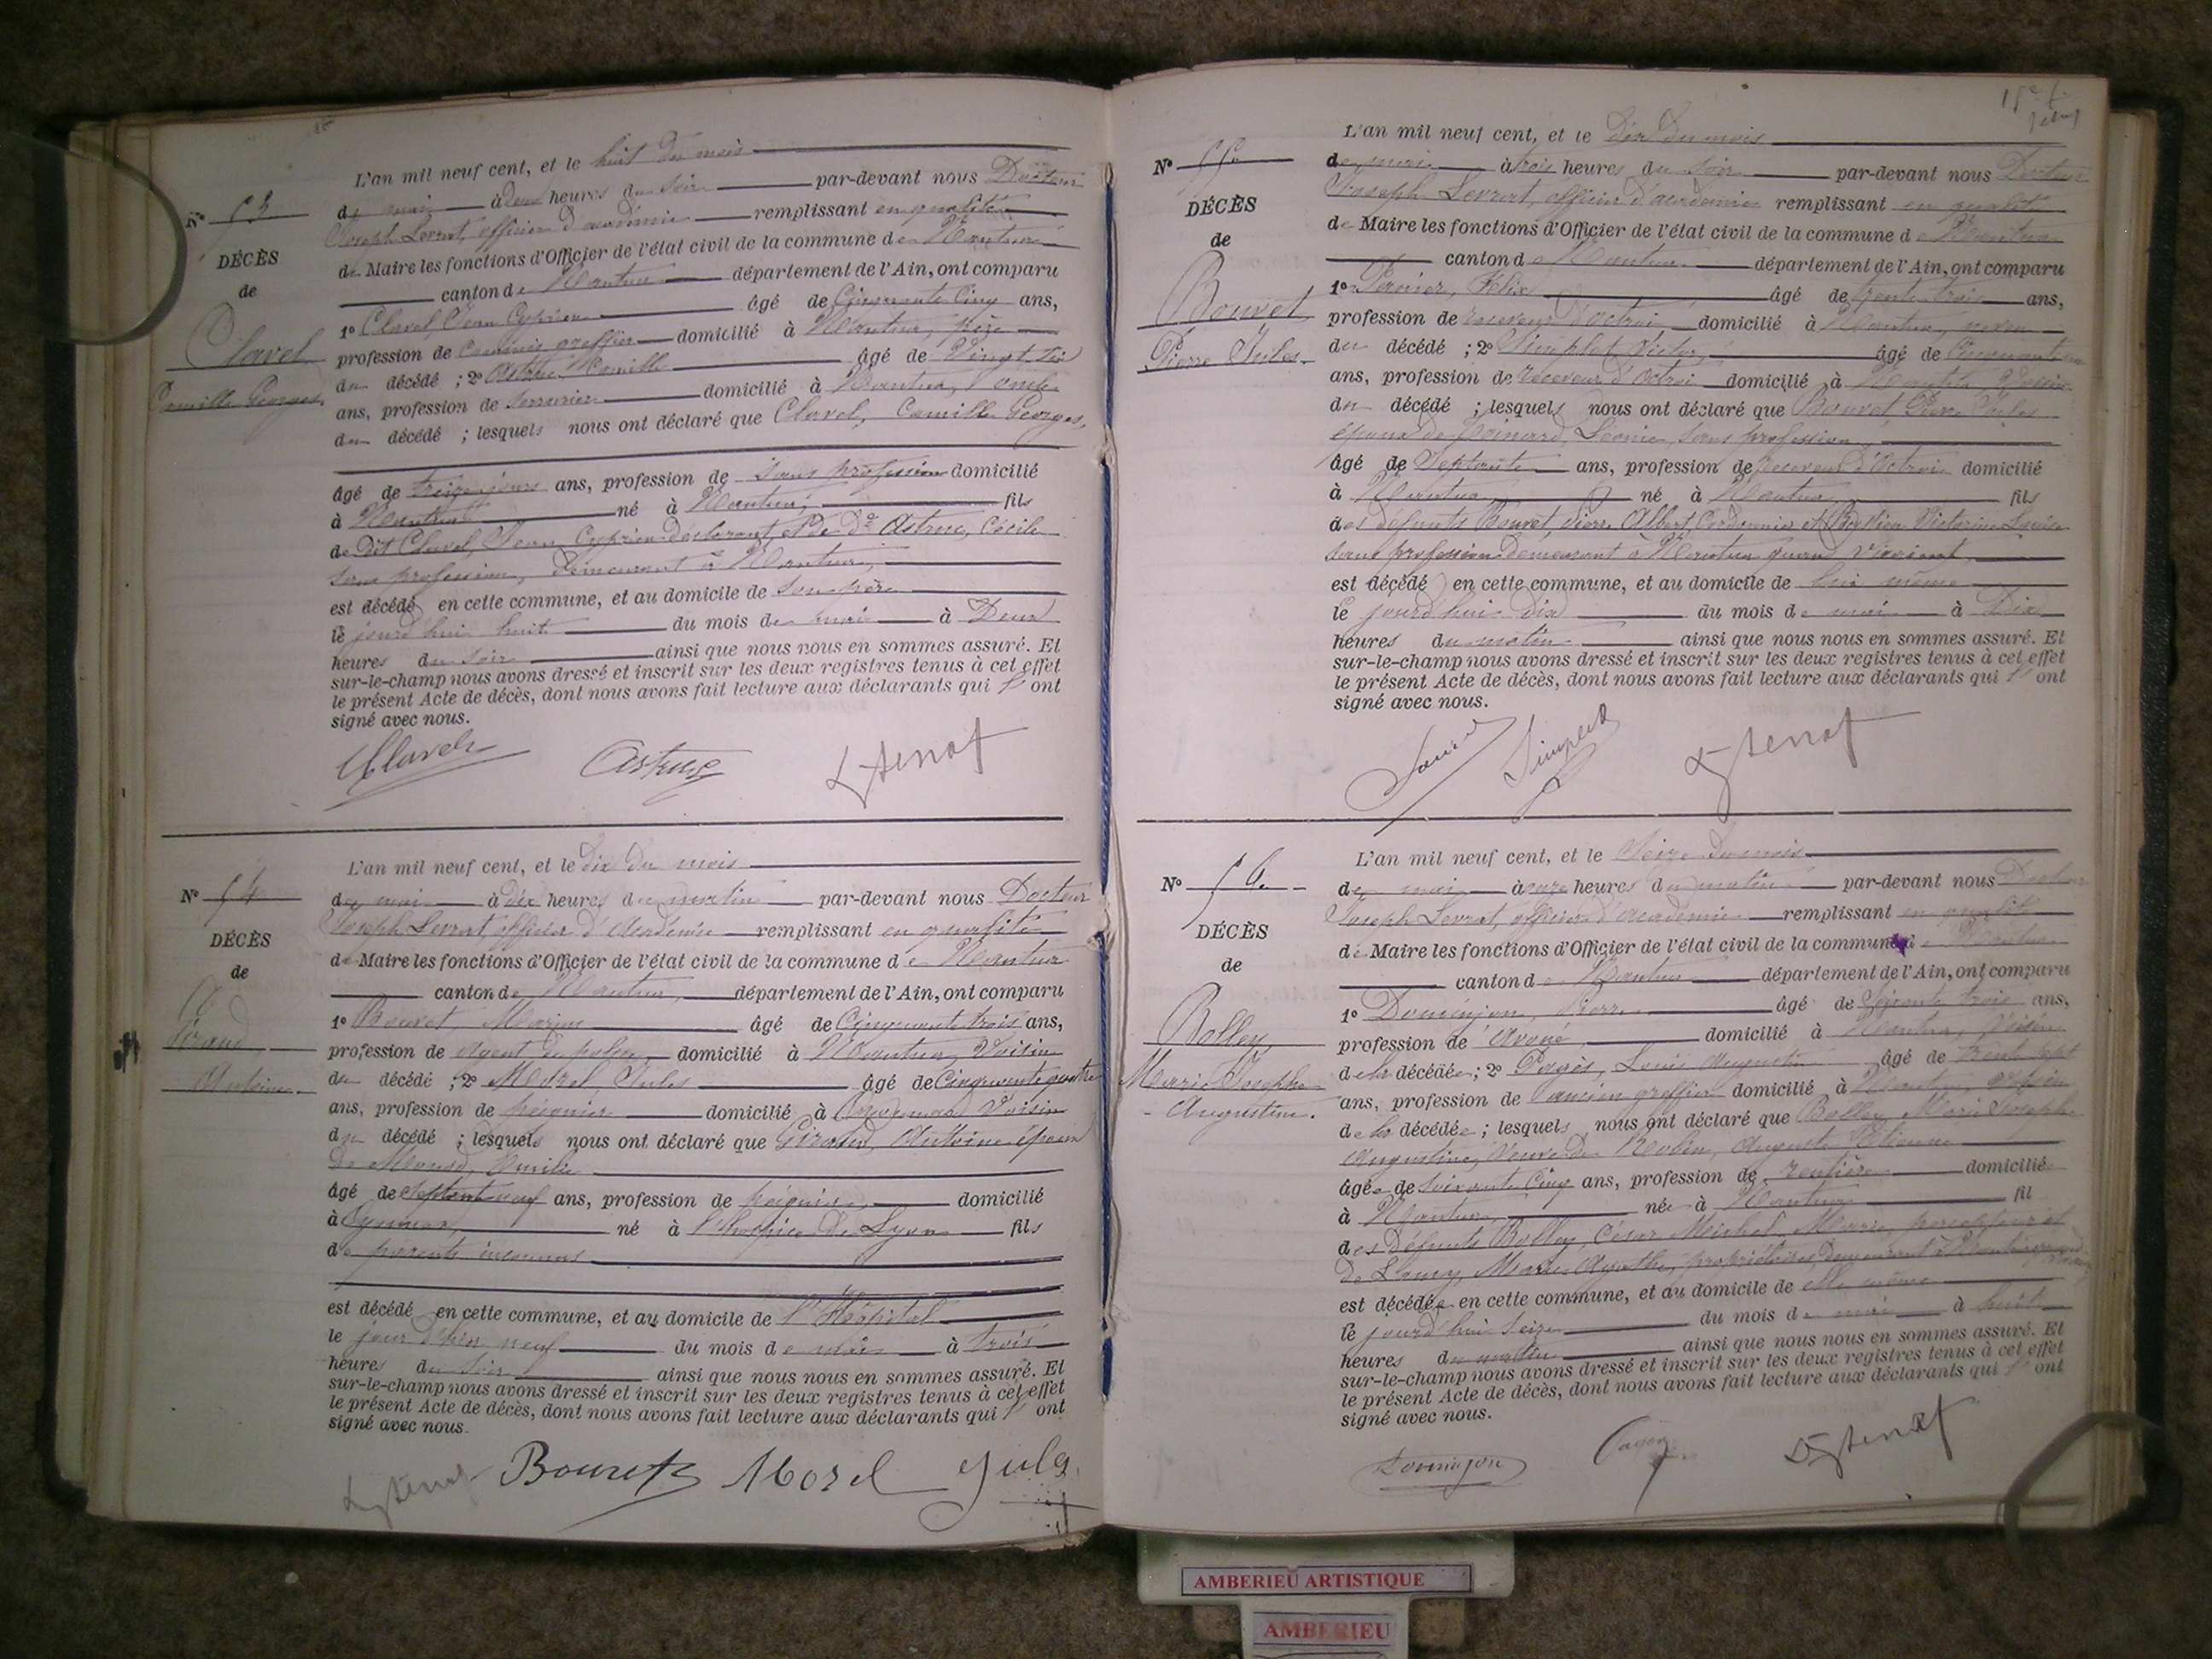 L'an mil neuf cent, et le huit du mois
N° 53
de mai à deux heures du soir par-devant nous Docteur
Joseph Levrat, officier d'académie remplissant en qualité
DÉCÈS
de
de Maire les fonctions d'Officier de l'état civil de la commune de Nantua
canton de Nantua département de l'Ain, ont comparu
1° Clavel Jean Cyprien âgé de Cinquante Cinq ans,
Clavel
Camille Georges
profession de commis greffier domicilié à Nantua, père
du décédé ; 2° Astruc Camille âgé de Vingt six
ans, profession de serrurier domicilié à Nantua, oncle
du décédé ; lesquels nous ont déclaré que Clavel, Camille Georges,
âgé de treize jours ans, profession de sans profession domicilié
à Nantua né à Nantua, fils
de dit Clavel, Jean Cyprien déclarant, et de De Astruc, Cécile
sans profession, demeurant à Nantua,
est décédé en cette commune, et au domicile de son père
le jourd'hui huit du mois de mai à Deux
heures du soir ainsi que nous nous en sommes assuré. Et
sur-le-champ nous avons dressé et inscrit sur les deux registres tenus à cet effet
le présent Acte de décès, dont nous avons fait lecture aux déclarants qui l' ont
signé avec nous.
Clavel Astruc
L'an mil neuf cent, et le dix du mois
N° 54
de mai à dix heures du matin par-devant nous Docteur
Joseph Levrat, officier d'Académie remplissant en qualité
DÉCÈS
de
de Maire les fonctions d'Officier de l'état civil de la commune de Nantua
canton de Nantua, département de l'Ain, ont comparu
1° Bouvet, Marius âgé de Cinquante trois ans,
Giraud
Antoine
profession de agent de police, domicilié à Nantua, Voisin
du décédé ; 2° Morel, Jules âgé de Cinquante quatre
ans, profession de peignier domicilié à Oyonnax Voisin
du décédé ; lesquels nous ont déclaré que Giraud, Antoine époux
de Emilie
âgé de septante neuf ans, profession de peignier domicilié
à Oyonnax, né à l'hospice de Lyon fils
de parents inconnus
est décédé en cette commune, et au domicile de l'Hôpital
le jour d'hier neuf du mois de mai à trois
heures du soir ainsi que nous nous en sommes assuré. Et
sur-le-champ nous avons dressé et inscrit sur les deux registres tenus à cet effet
le présent Acte de décès, dont nous avons fait lecture aux déclarants qui l' ont
signé avec nous.
Bouvet Morel Jules
L'an mil neuf cent, et le dix du mois
N° 55
de mai à trois heures du soir par-devant nous Docteur
Joseph Levrat, officier d'académie remplissant en qualité
DÉCÈS
de
de Maire les fonctions d'Officier de l'état civil de la commune de Nantua
canton de Nantua département de l'Ain, ont comparu
1° Félix âgé de trente trois ans,
Bouvet
Pierre Jules
profession de receveur d'octroi domicilié à Nantua, neveu
du décédé ; 2° Simplet Victor, âgé de Cinquante
ans, profession de receveur d'octroi domicilié à Nantua Voisin
du décédé ; lesquels nous ont déclaré que Bouvet Pierre Jules
époux de Poinard, Léonie, sans profession,
âgé de Septante ans, profession de receveur d'Octroi domicilié
à Nantua né à Nantua, fils
des défunts Bouvet Pierre Albert, Cordonnier et Victorine Louise
sans profession demeurant à Nantua quand vivaient,
est décédé en cette commune, et au domicile de lui même
le jourd'hui dix du mois de mai à Dix
heures du matin ainsi que nous nous en sommes assuré. Et
sur-le-champ nous avons dressé et inscrit sur les deux registres tenus à cet effet
le présent Acte de décès, dont nous avons fait lecture aux déclarants qui l' ont
signé avec nous.
Simplet
L'an mil neuf cent, et le Seize du mois
N° 56
de mai à onze heures du matin par-devant nous Docteur
Joseph Levrat, officier d'Académie remplissant en qualité
DÉCÈS
de
de Maire les fonctions d'Officier de l'état civil de la commune de Nantua
canton de Nantua département de l'Ain, ont comparu
1° Dominjon, Pierre âgé de Soixante trois ans,
Bolley
Marie Josephe
Augustine.
profession de avoué domicilié à Nantua, Voisin
de la décédée ; 2° Pagès, Louis Augustin âgé de trente sept
ans, profession de ancien greffier domicilié à Nantua, Voisin
de la décédée ; lesquels nous ont déclaré que Bolley, Marie Josephe
Augustine, veuve de Auguste Etienne
âgée de soixante cinq ans, profession de rentière domicilié
à Nantua née à Nantua fil
des défunts Bolley, César Michel Marie, percepteur et
de Marie Agathe, propriétaires, demeurant à Nantua quand
est décédée en cette commune, et au domicile de elle même
le jourd'hui seize du mois de mai à huit
heures du matin ainsi que nous nous en sommes assuré. Et
sur-le-champ nous avons dressé et inscrit sur les deux registres tenus à cet effet
le présent Acte de décès, dont nous avons fait lecture aux déclarants qui l' ont
signé avec nous.
Dominjon
AMBERIEU ARTISTIQUE
AMBERIEU